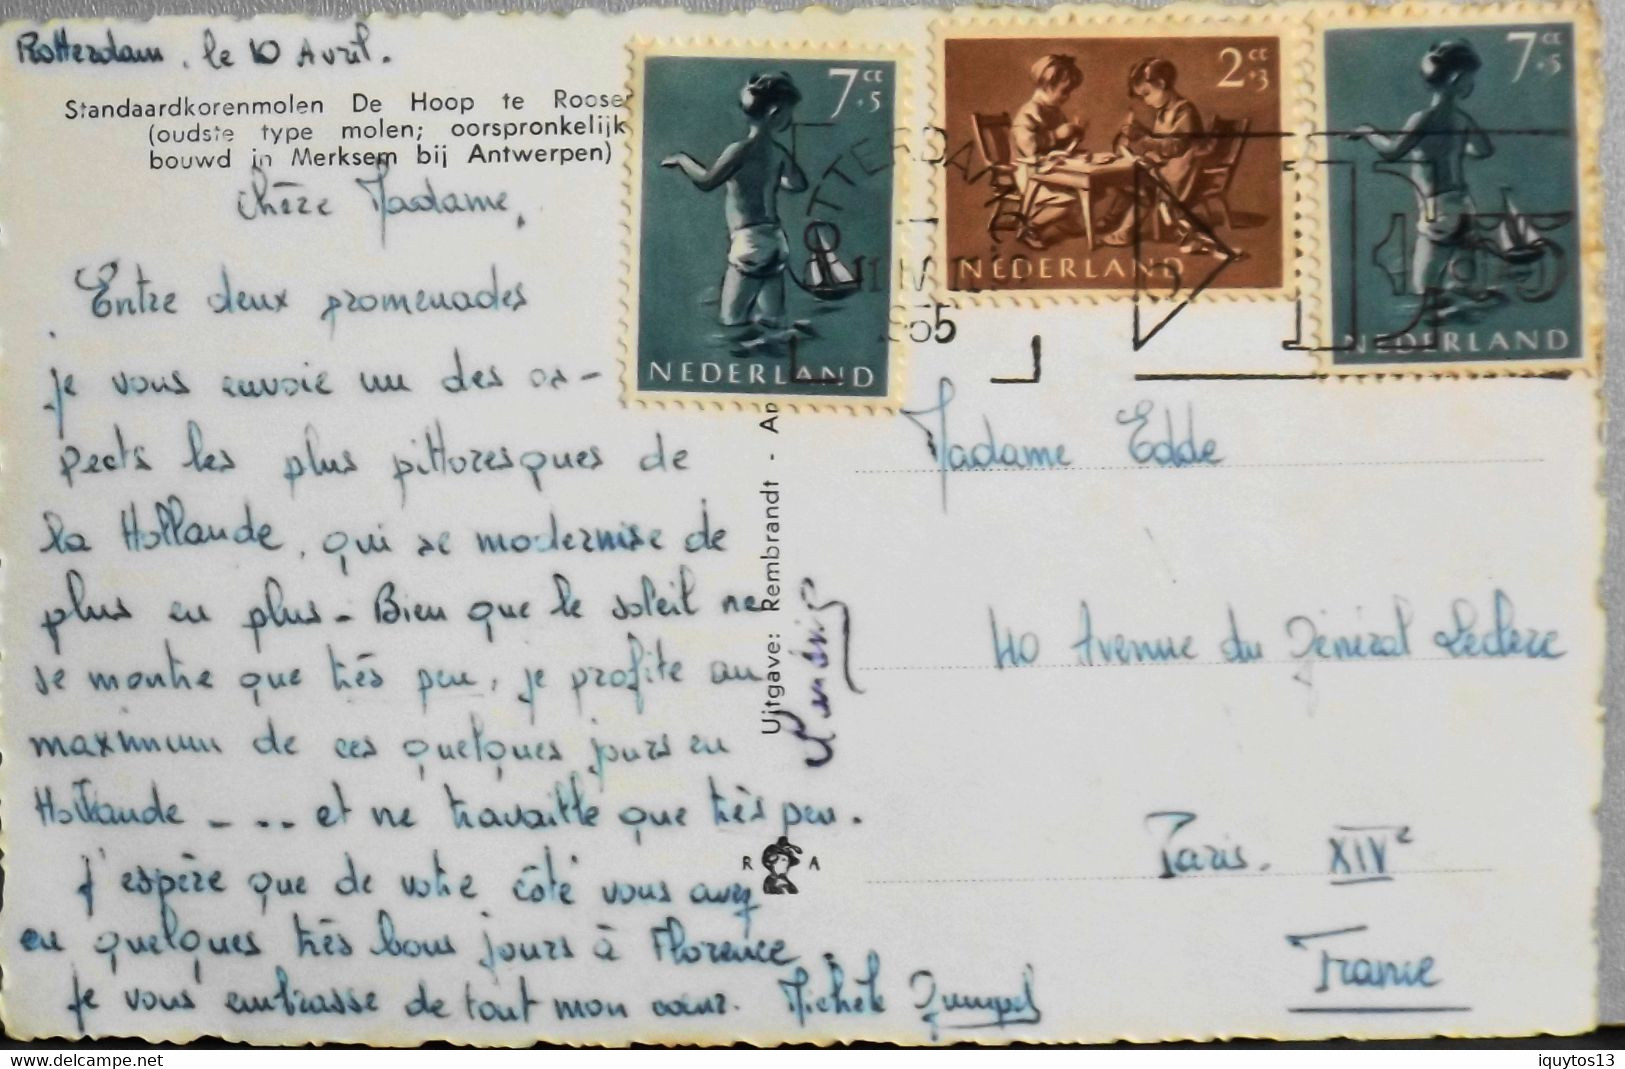 Rotterdam, le 10 Avril.
Standaardkorenmolen De Hoop te Roose
(oudste type molen; oorspronkelijk
bouwd in Merksem bij Antwerpen)
Chère Madame,
Entre deux promenades
je vous envoie un des as-
pects les plus pittoresques de
la Hollande, qui se modernise de
plus en plus - Bien que le soleil ne
se montre que très peu, je profite au
maximum de ces quelques jours en
Hollande - - - et ne travaille que très peu.
J'espère que de votre côté vous avez
eu quelques très bons jours à Florence.
Je vous embrasse de tout mon coeur. Michèle
7 ct
+5
NEDERLAND
2 ct
+3
NEDERLAND
7 ct
+5
NEDERLAND
ROTTERDAM
1955
Uitgave: Rembrandt - A
R A
Madame Edde
40 Avenue du Général Leclerc
Paris. XIVe
France
delcampe.net
iquytos13